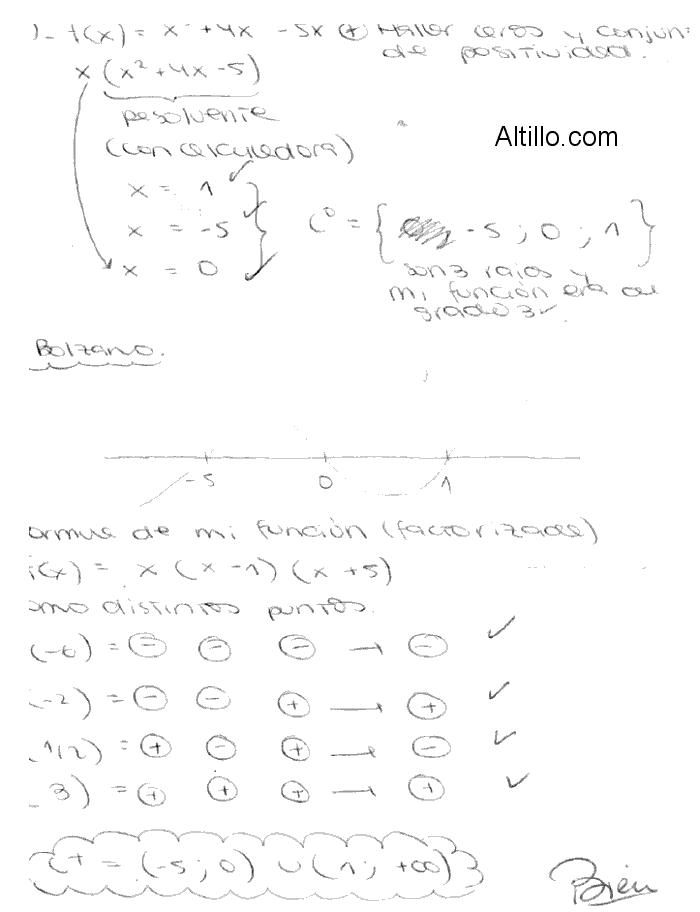 )- f(x) = x³ + 4x² - 5x (+) Hallar ceros y conjun-
de positividad.
x (x² + 4x - 5)
resolvente
(con calculadora)
Altillo.com
x = 1 ✓
x = -5
x = 0
C⁰ = { -5 ; 0 ; 1 }
son 3 raices y
mi función era de
grado 3 ✓
Bolzano.
-5 0 1
ormula de mi función (factorizada)
f(x) = x (x - 1) (x + 5)
omo distintos puntos.
(-6) = - - - → - ✓
(-2) = - - + → + ✓
(1/2) = + - + → - ✓
(3) = + + + → + ✓
C+ = (-5 ; 0) ∪ (1 ; +∞)
Bien